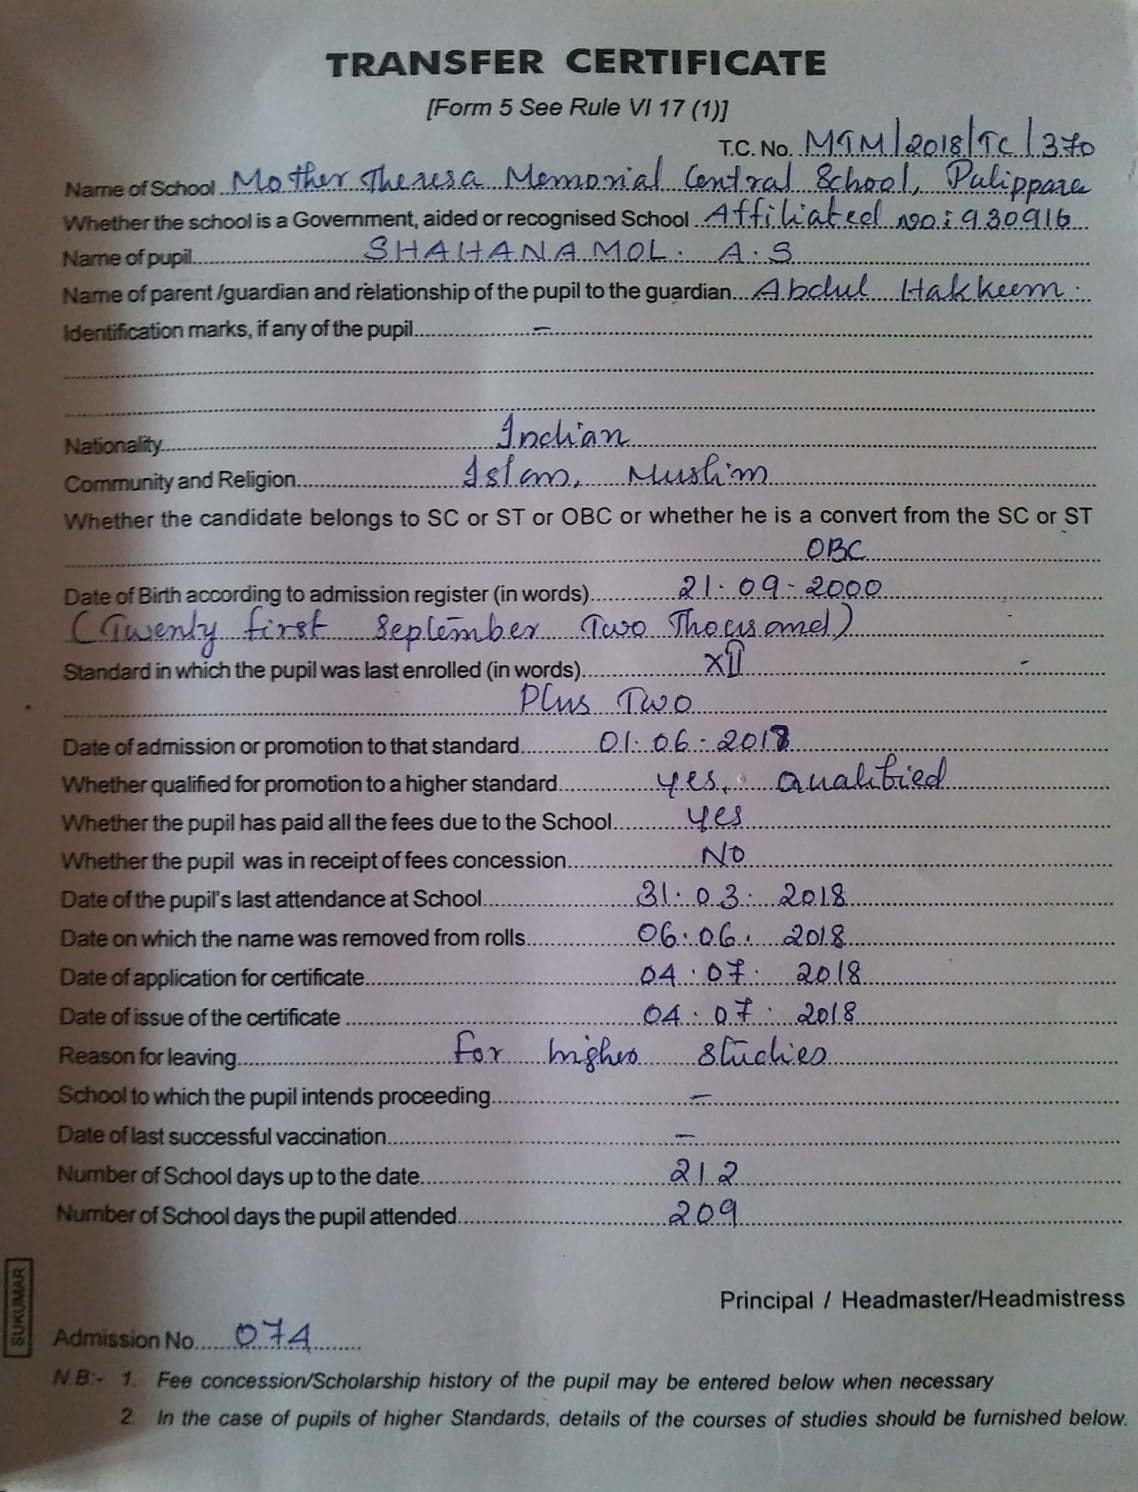 TRANSFER CERTIFICATE
[Form 5 See Rule VI 17 (1)]
T.C. No. MTM/2018/TC/370
Name of School Mother Theresa Memorial Central School, Palippara
Whether the school is a Government, aided or recognised School Affiliated no: 930916
Name of pupil SHAHANAMOL. A.S
Name of parent /guardian and relationship of the pupil to the guardian Abdul Hakkeem.
Identification marks, if any of the pupil –
Nationality Indian
Community and Religion Islam, Muslim
Whether the candidate belongs to SC or ST or OBC or whether he is a convert from the SC or ST
OBC
Date of Birth according to admission register (in words) 21.09-2000
(Twenty first September Two Thousand)
Standard in which the pupil was last enrolled (in words) XII
Plus Two
Date of admission or promotion to that standard 01.06-2017
Whether qualified for promotion to a higher standard yes, Qualified
Whether the pupil has paid all the fees due to the School yes
Whether the pupil was in receipt of fees concession No
Date of the pupil's last attendance at School 31.03.2018
Date on which the name was removed from rolls 06.06.2018
Date of application for certificate 04.07.2018
Date of issue of the certificate 04.07.2018
Reason for leaving For higher studies
School to which the pupil intends proceeding –
Date of last successful vaccination –
Number of School days up to the date 212
Number of School days the pupil attended 209
Principal / Headmaster/Headmistress
SUKUMAR
Admission No 074
N.B:- 1. Fee concession/Scholarship history of the pupil may be entered below when necessary
2. In the case of pupils of higher Standards, details of the courses of studies should be furnished below.